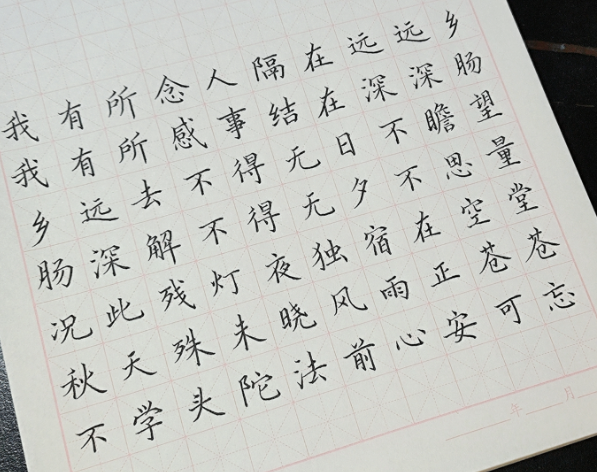 我有所念人隔在远远乡
我有所感事结在深深肠
乡远去不得无日不瞻望
肠深解不得无夕不思量
况此残灯夜独宿在空堂
秋天殊未晓风雨正苍苍
不学头陀法前心安可忘
年 月